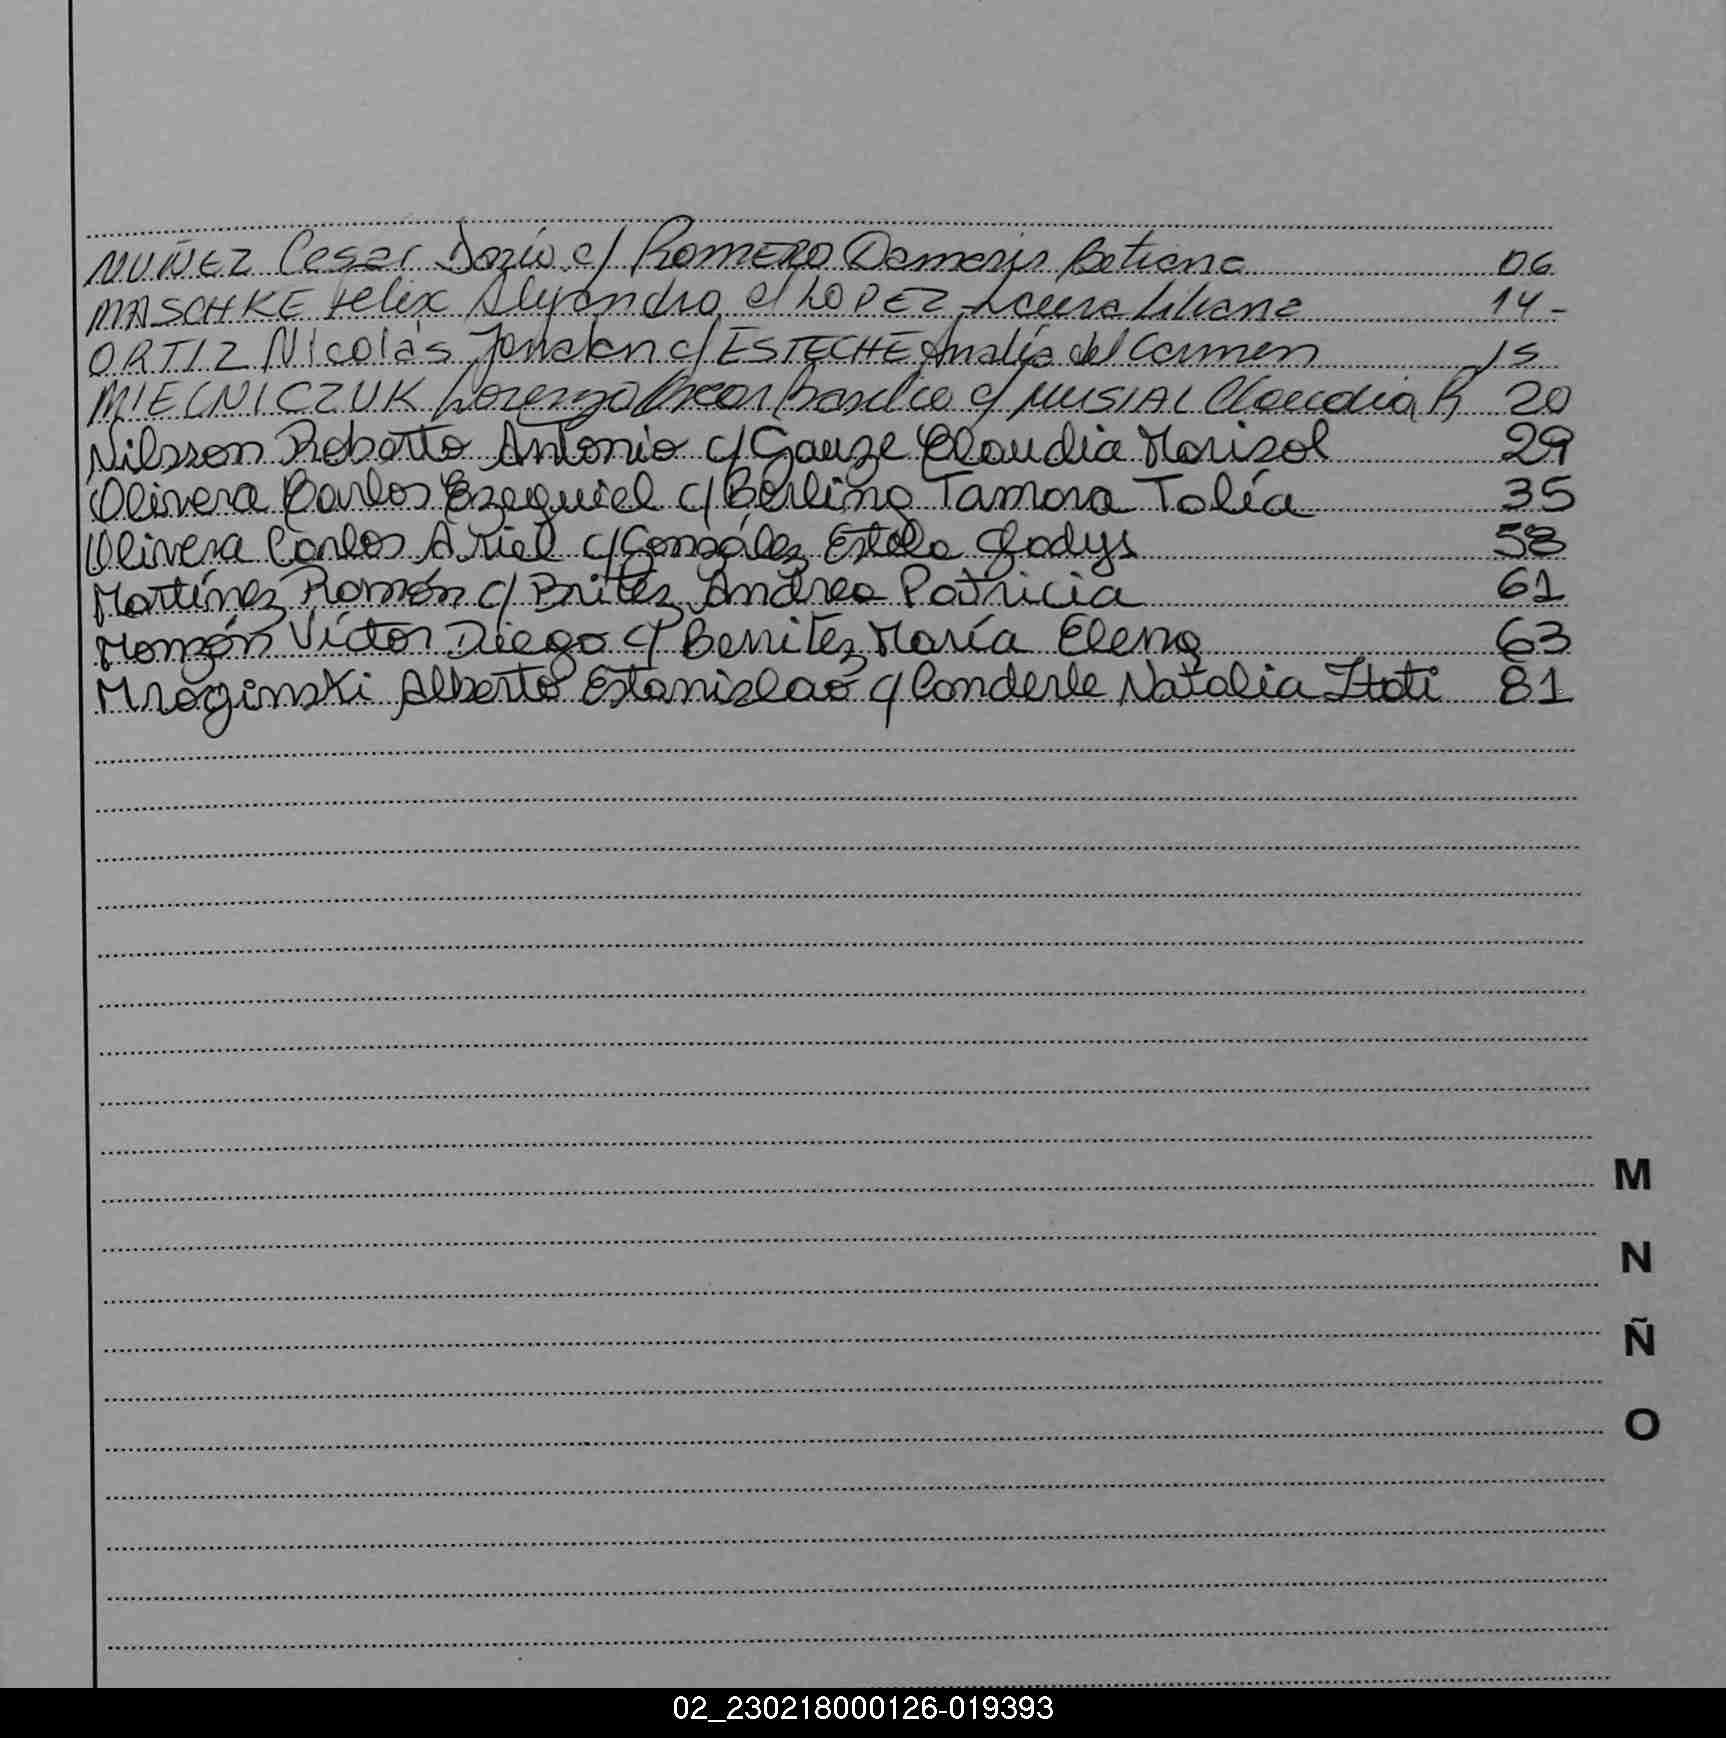 NUÑEZ Cesar Darío c/ ROMERO Damaris Betiana 06
MASCHKE Felix Alejandro c/ LOPEZ Laura Liliana 14-
ORTIZ Nicolás Jonatan c/ ESTECHE Analía del Carmen 15
MIELNICZUK Lorenzo Oscar Basilio c/ MUSIAL Claudia R 20
Nilsson Roberto Antonio c/ Gauze Claudia Marisol 29
Olivera Carlos Ezequiel c/ Berling Tamara Tolía 35
Olivera Carlos Ariel c/ González Estela Gladys 58
Martínez Román c/ Britez Andrea Patricia 61
Monzón Víctor Diego c/ Benitez María Elena 63
Mroginski Alberto Estanislao c/ Conderle Natalia Itatí 81
M
N
Ñ
O
02_230218000126-019393